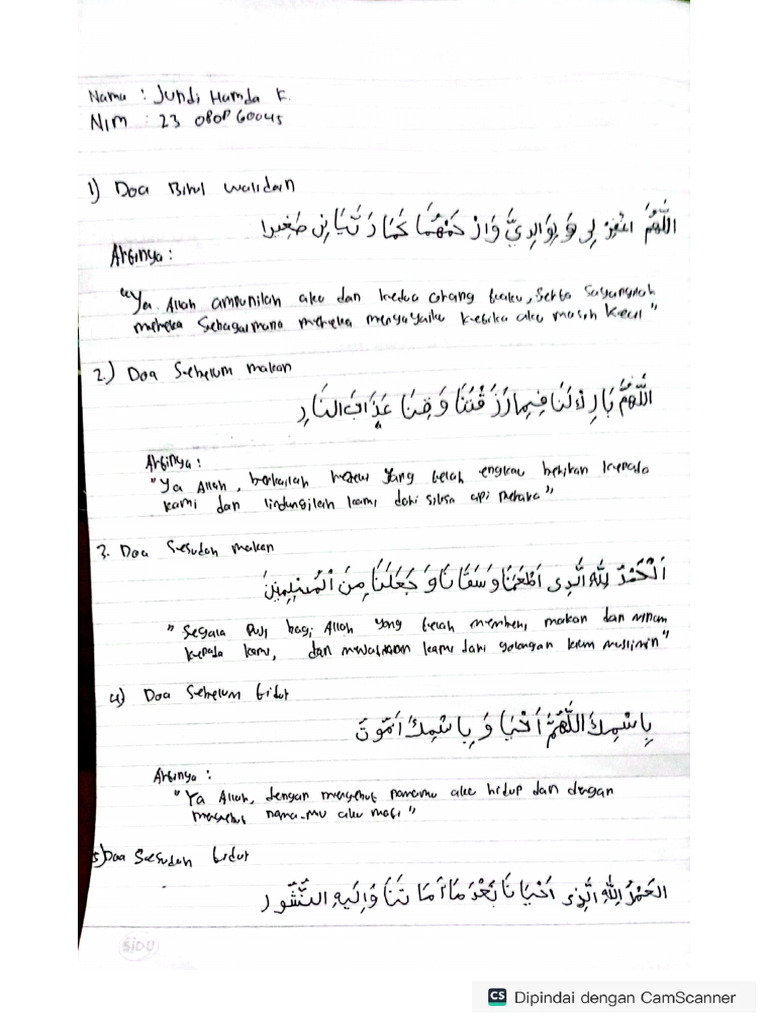 Nama : Jundi Hamda K.
NIM : 23 080P60045
1) Doa Birul walidain
اللَّهُمَّ اغْفِرْ لِي وَ لِوَالِدِيَّ وَارْ حَمْهُمَا كَمَا رَبَّيَا نِي صَغِيرا
Artinya :
"Ya Allah ampunilah aku dan kedua orang tuaku, serta sayangilah
mereka sebagaimana mereka menyayaiku ketika aku masih kecil"
2.) Doa Sebelum makan
اللَّهُمَّ بَارِكْ لَنَا فِيمَا رَزَ قْتَنَا وَ قِنَا عَذَابَ النَّارِ
Artinya :
"Ya Allah, berkailah yang telah engkau berikan kepada
kami dan lindungilah kami, dari siksa api neraka"
3. Doa Sesudah makan
اَلْحَمْدُ لِلَّهِ الَّذِى اَطْعَمَنَا وَ سَقَانَا وَ جَعَلَنَا مِنَ الْمُسْلِمِيْنَ
" Segala Puji bagi Allah yang telah memberi makan dan minum
kepada kami, dan kami dari golongan kaum muslimin"
4) Doa Sebelum tidur
بِاسْمِكَ اللَّهُمَّ اَحْيَا وَ بِاسْمِكَ اَمُوْتَ
Artinya :
"Ya Allah, dengan menyebut namamu aku hidup dan dengan
menyebut nama-mu aku mati"
5) Doa Sesudah tidur
الحَمْدُ لِلَّهِ الَّذِى اَحْيَا نَا بَعْدَ مَا اَمَا تَنَا وَ اِلَيْهِ النُّشُور
SIDU
CS Dipindai dengan CamScanner